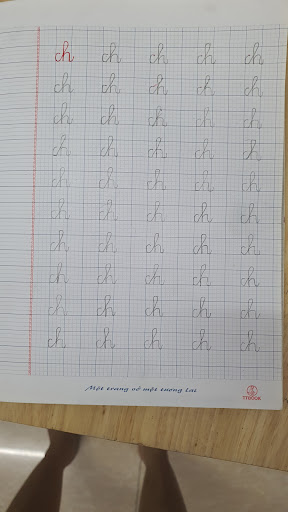 ch ch ch ch ch
ch ch ch ch ch
ch ch ch ch ch
ch ch ch ch ch
ch ch ch ch ch
ch ch ch ch ch
ch ch ch ch ch
ch ch ch ch ch
ch ch ch ch ch
ch ch ch ch ch
Một trang vở một tương lai
TTBOOK